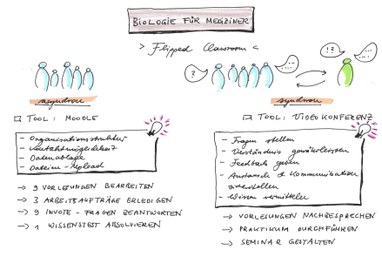 BIOLOGIE FÜR MEDIZINER
> Flipped Classroom <
?
!?
asynchron
synchron
TOOL: MOODLE
- Organisationsstruktur
- Kontaktmöglichkeit
- Datenablage
- Dateien-Upload
→ 9 VORLESUNGEN BEARBEITEN
→ 3 ARBEITSAUFTRÄGE ERLEDIGEN
→ 9 INVOTE-FRAGEN BEANTWORTEN
→ 1 WISSENSTEST ABSOLVIEREN
TOOL: VIDEOKONFERENZ
- Fragen stellen
- Verständnis gewährleisten
- Feedback geben
- Austausch & Kommunikation
- Wissen vermitteln
→ VORLESUNGEN NACHBESPRECHEN
→ PRAKTIKUM DURCHFÜHREN
→ SEMINAR GESTALTEN